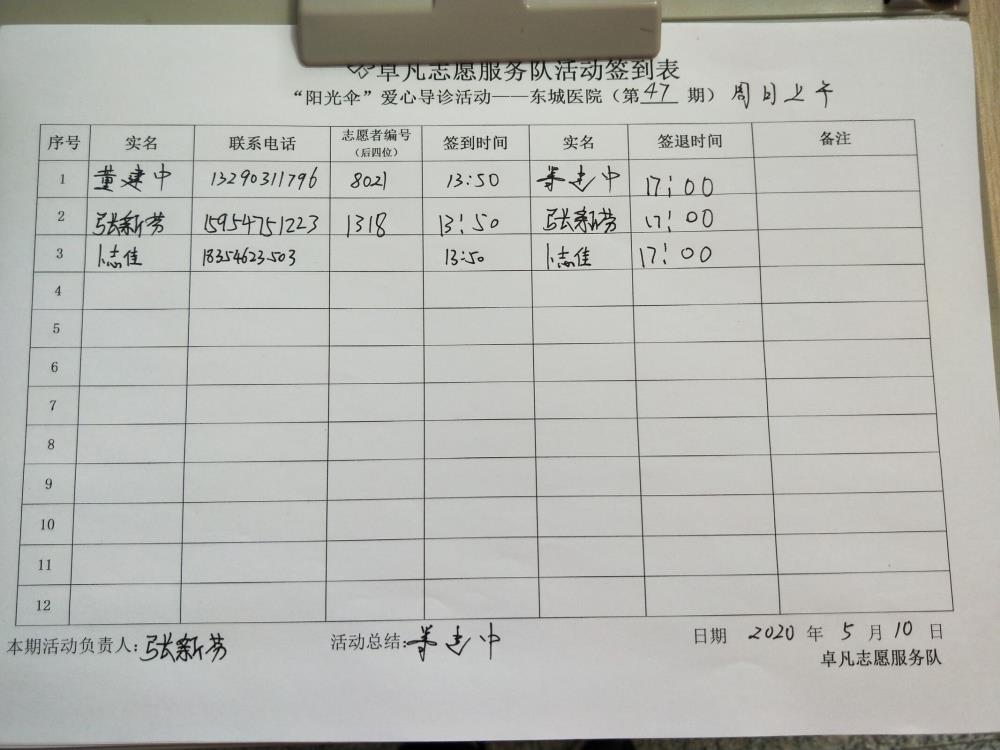 卓凡志愿服务队活动签到表
“阳光伞”爱心导诊活动——东城医院（第 47 期） 周日上午
序号 实名 联系电话 志愿者编号（后四位） 签到时间 实名 签退时间 备注
1 董建中 13290311796 8021 13:50 董建中 17:00
2 张新芳 15954751223 1318 13:50 张新芳 17:00
3 卜志佳 18354623503 13:50 卜志佳 17:00
4
5
6
7
8
9
10
11
12
本期活动负责人：张新芳 活动总结：董建中 日期 2020 年 5 月 10 日
卓凡志愿服务队